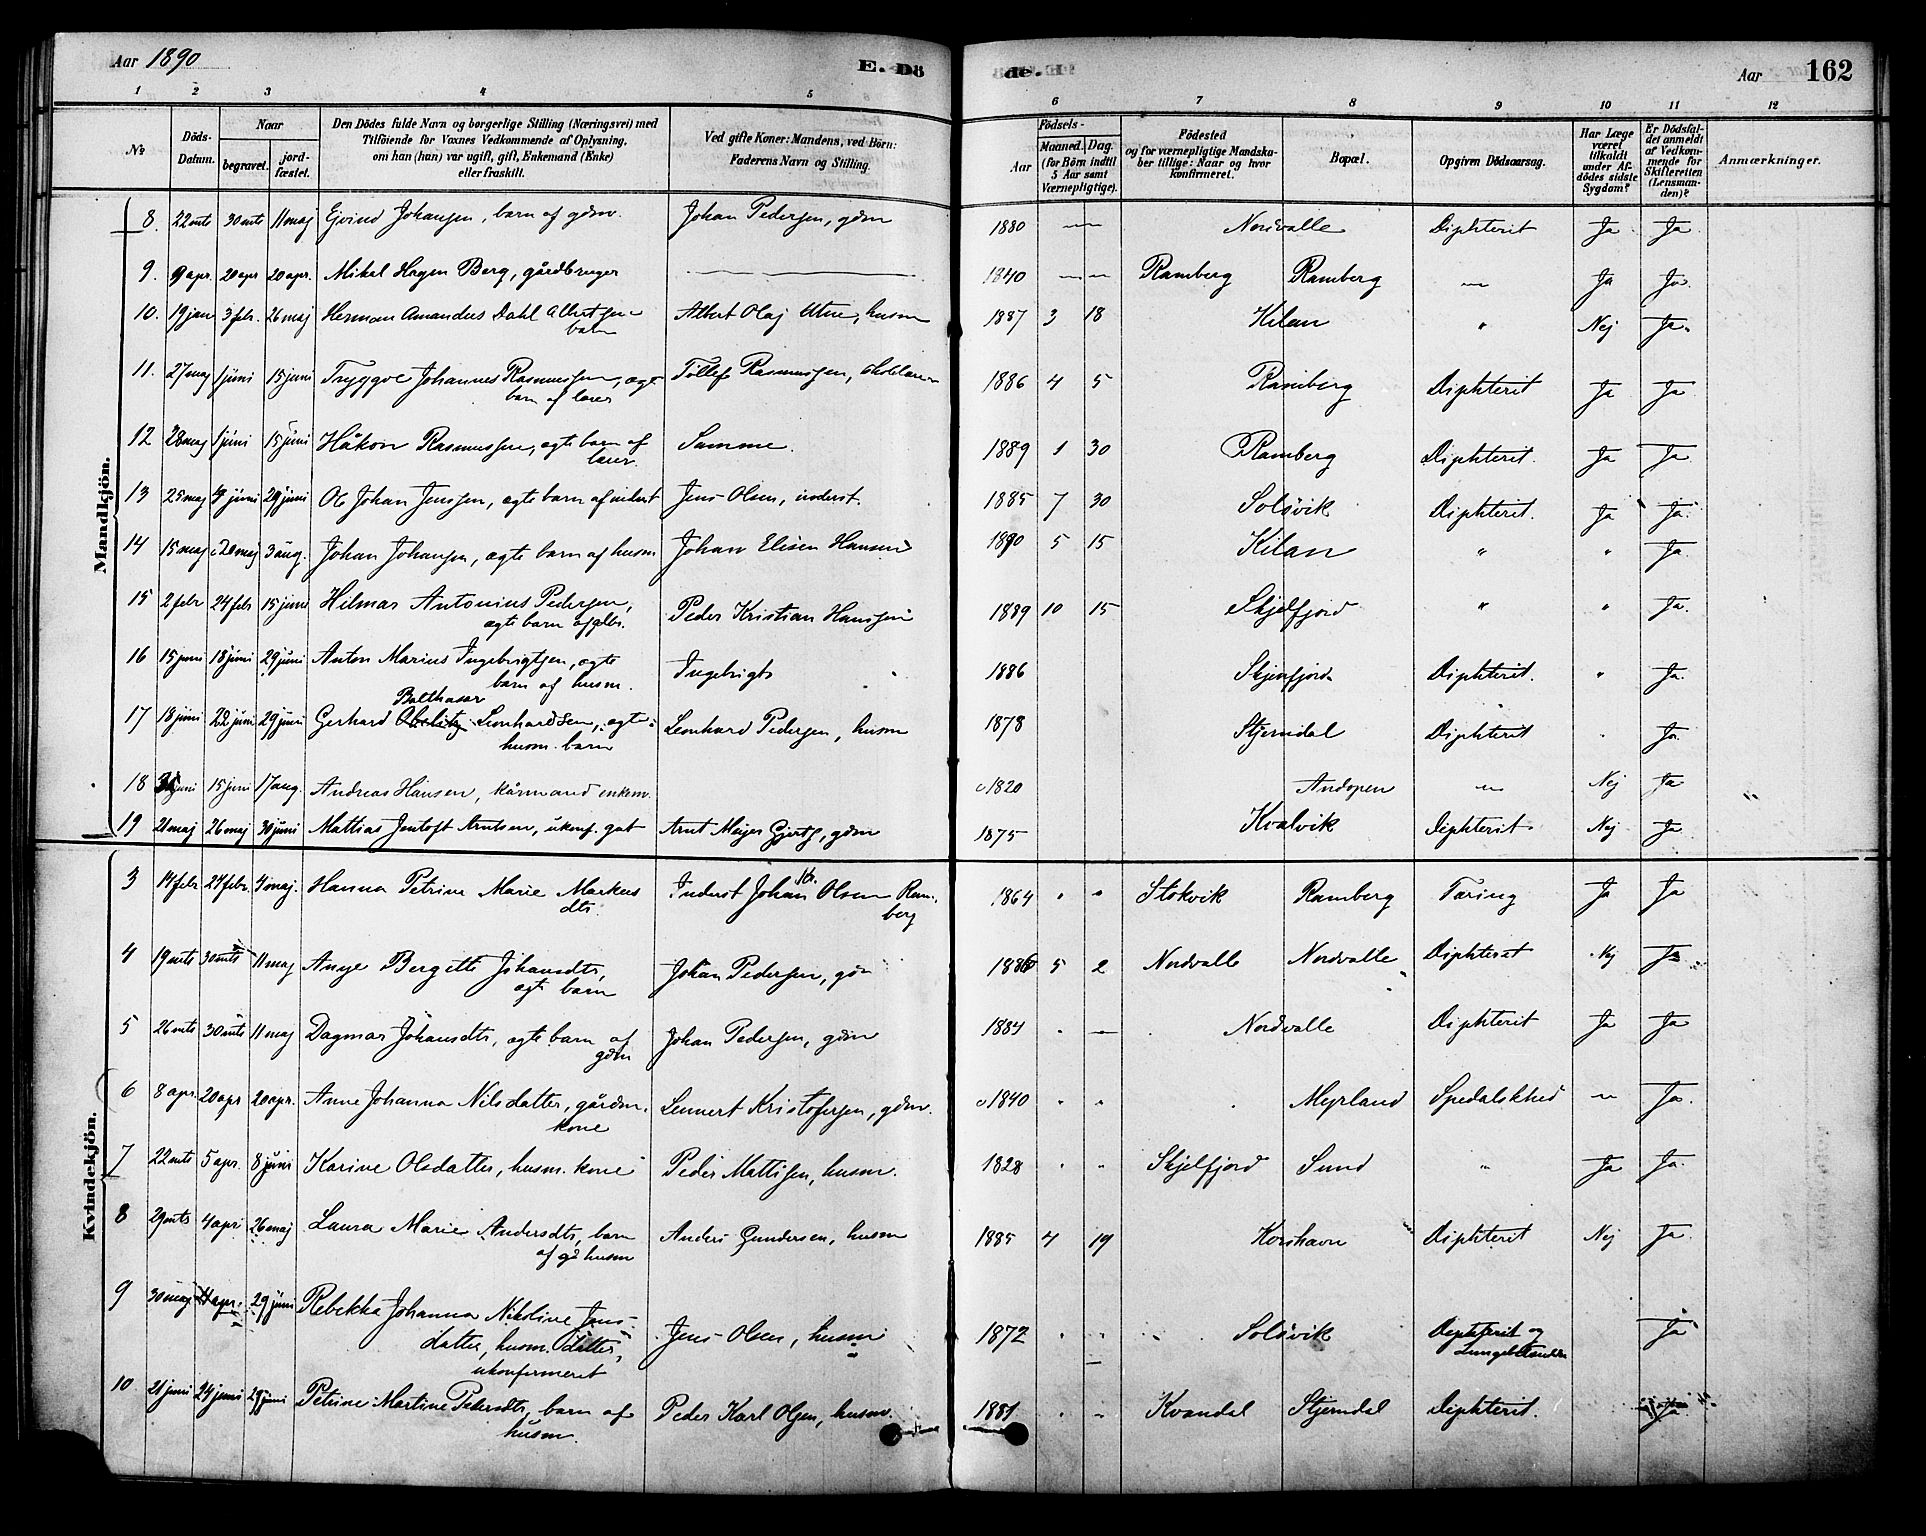 Aar 1890
E. Dö
de.
Aar 162
1 2 3 4 5 6 7 8 9 10 11 12
№
Döds-Datum.
Naar
begravet.
jordfæstet.
Den Dödes fulde Navn og borgerlige Stilling (Næringsvei) med
Tilföiende for Voxnes Vedkommende af Oplysning,
om han (hun) var ugift, gift, Enkemand (Enke)
eller fraskilt.
Ved gifte Koner: Mandens, ved Börn:
Faderens Navn og Stilling.
Födsels-
Aar
Maaned. Dag.
(for Börn indtil
5 Aar samt
Værnepligtige).
Födested
og for værnepligtige Mandska-
ber tillige: Naar og hvor
konfirmeret.
Bopæl.
Opgiven Dödsaarsag.
Har Læge
været
tilkaldt
under Af-
dödes sidste
Sygdom?
Er Dödsfal-
det anmeldt
af Vedkom-
mende for
Skifteretten
(Lensman-
den)?
Anmærkninger.
Mandkjön.
8. 22 mts 30 mts 11 maj Ejvind Johansen, barn af gdm. Johan Pedersen, gdm 1880 — — Nordvalle Diphterit Ja Ja
9. 9 apr. 20 apr 20 apr. Mikal Hagen Berg, gårdbruger — 1840 — — Ramberg Ramberg — Ja Ja.
10. 19 jan 3 febr. 26 maj Herman Amandus Dahl Albertsen barn Albert Olaj Utne, husm 1887 3 18 Kilan " Nej Ja.
11. 27 maj 1 juni 15 juni Tryggve Johannes Rasmussen, ægte barn af lærer Tollef Rasmussen, 1886 4 5 Ramberg Diphterit Ja Ja
12 28 maj 1 juni 15 juni Håkon Rasmussen, ægte barn af lærer. Samme. 1889 1 30 Ramberg Diphterit. Ja Ja
13 25 maj juni 29 juni Ole Johan Jenssen, ægte barn af inderst Jens Olsen, inderst. 1885 7 30 Solövik Diphterit. Ja Ja.
14 15 maj 20 maj 3 aug. Johan Johansen, ægte barn af husm Johan Elisen Hansen 1890 5 15 Kilan " " Ja.
15 2 febr 24 febr 15 juni Hilmar Antonius Pedersen, ægte barn af gdbr. Peder Kristian Hanssen 1889 10 15 Skjelfjord " " Ja.
16 15 juni 18 juni 29 juni Anton Marius Ingebrigtsen, ægte barn af husm. Ingebrigt 1886 Skjelfjord Diphterit. " Ja.
17 18 juni 22 juni 29 juni Gerhard Balthasar Leonhardsen, ægte husm. barn Leonhard Pedersen, husm 1878 Stjerndal Diphterit " Ja.
18 juni 15 juni 17 aug. Andreas Hansen, kårmand enkem. c1820 Andopen — Nej Ja
19 21 maj 26 maj 30 juni Mattias Jentoft Arntsen, ukonf. gut Arnt Mejer Gjertz, gdm 1875 Kvalvik Diphterit Nej Ja
Kvindekjön.
3 14 febr 24 febr. 4 maj. Hanna Petrine Marie Markusdtr. Inderst Johan Olsen Ramberg 1864 " " Stokvik Ramberg Tæring Ja Ja
4 19 mts 30 mts 11 maj Anne Bergitte Johansdtr, ægte barn Johan Pedersen, 1886 5 2 Nordvalle Nordvalle Diphterit Nej Ja
5 26 mts 30 mts 11 maj Dagmar Johansdtr, ægte barn af gdm Johan Pedersen, gdm 1884 " — Nordvalle Diphterit Ja Ja
6 8 apr. 20 apr 20 apr. Anne Johanna Nilsdatter, gårdm. kone Lennert Kristofersen, gdm. c1840 " " Myrland Spedalskhed — Ja.
7 22 mts 5 apr. 8 juni Karine Olsdatter, husm. kone Peder Mattisen, husm. 1828 " " Skjelfjord Sund " Ja Ja.
8 29 mts 4 apri 26 maj Laura Marie Andersdtr, barn af husm Anders Gundersen, husm 1885 4 19 Korshavn Diphterit Nej Ja.
9 30 maj 4 apr. 29 juni Rebekka Johanna Nikoline Jensdatter, husm. datter, ukonfirmeret Jens Olsen, husm 1872 " " Solövik Diphterit og Ja
10 21 juni 24 juni 29 juni Petrine Martine Pedersdtr, barn af husm. Peder Karl Olsen, husm. 1881 " " Kvandal Stjerndal Diphterit. Ja